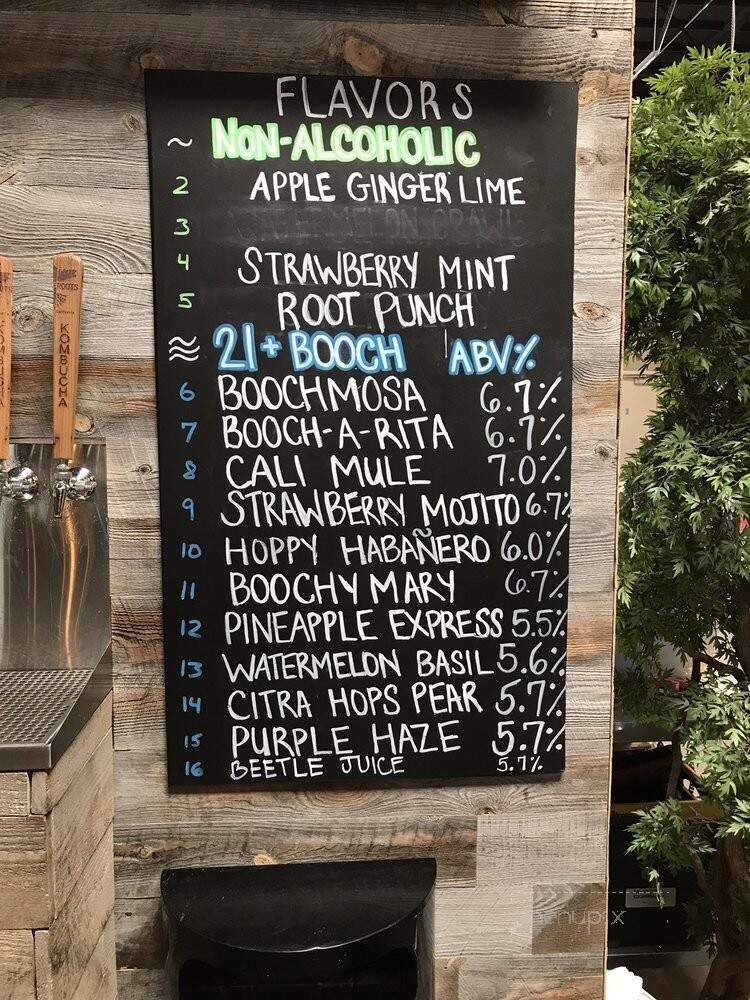 FLAVORS
~ NON-ALCOHOLIC
2 APPLE GINGER LIME
3 WATERMELON CRAWL
4 STRAWBERRY MINT
5 ROOT PUNCH
21+ BOOCH ABV%
6 BOOCHMOSA 6.7%
7 BOOCH-A-RITA 6.7%
8 CALI MULE 7.0%
9 STRAWBERRY MOJITO 6.7%
10 HOPPY HABAÑERO 6.0%
11 BOOCHY MARY 6.7%
12 PINEAPPLE EXPRESS 5.5%
13 WATERMELON BASIL 5.6%
14 CITRA HOPS PEAR 5.7%
15 PURPLE HAZE 5.7%
16 BEETLE JUICE 5.7%
ROOTS
KOMBUCHA
KOMBUCHA